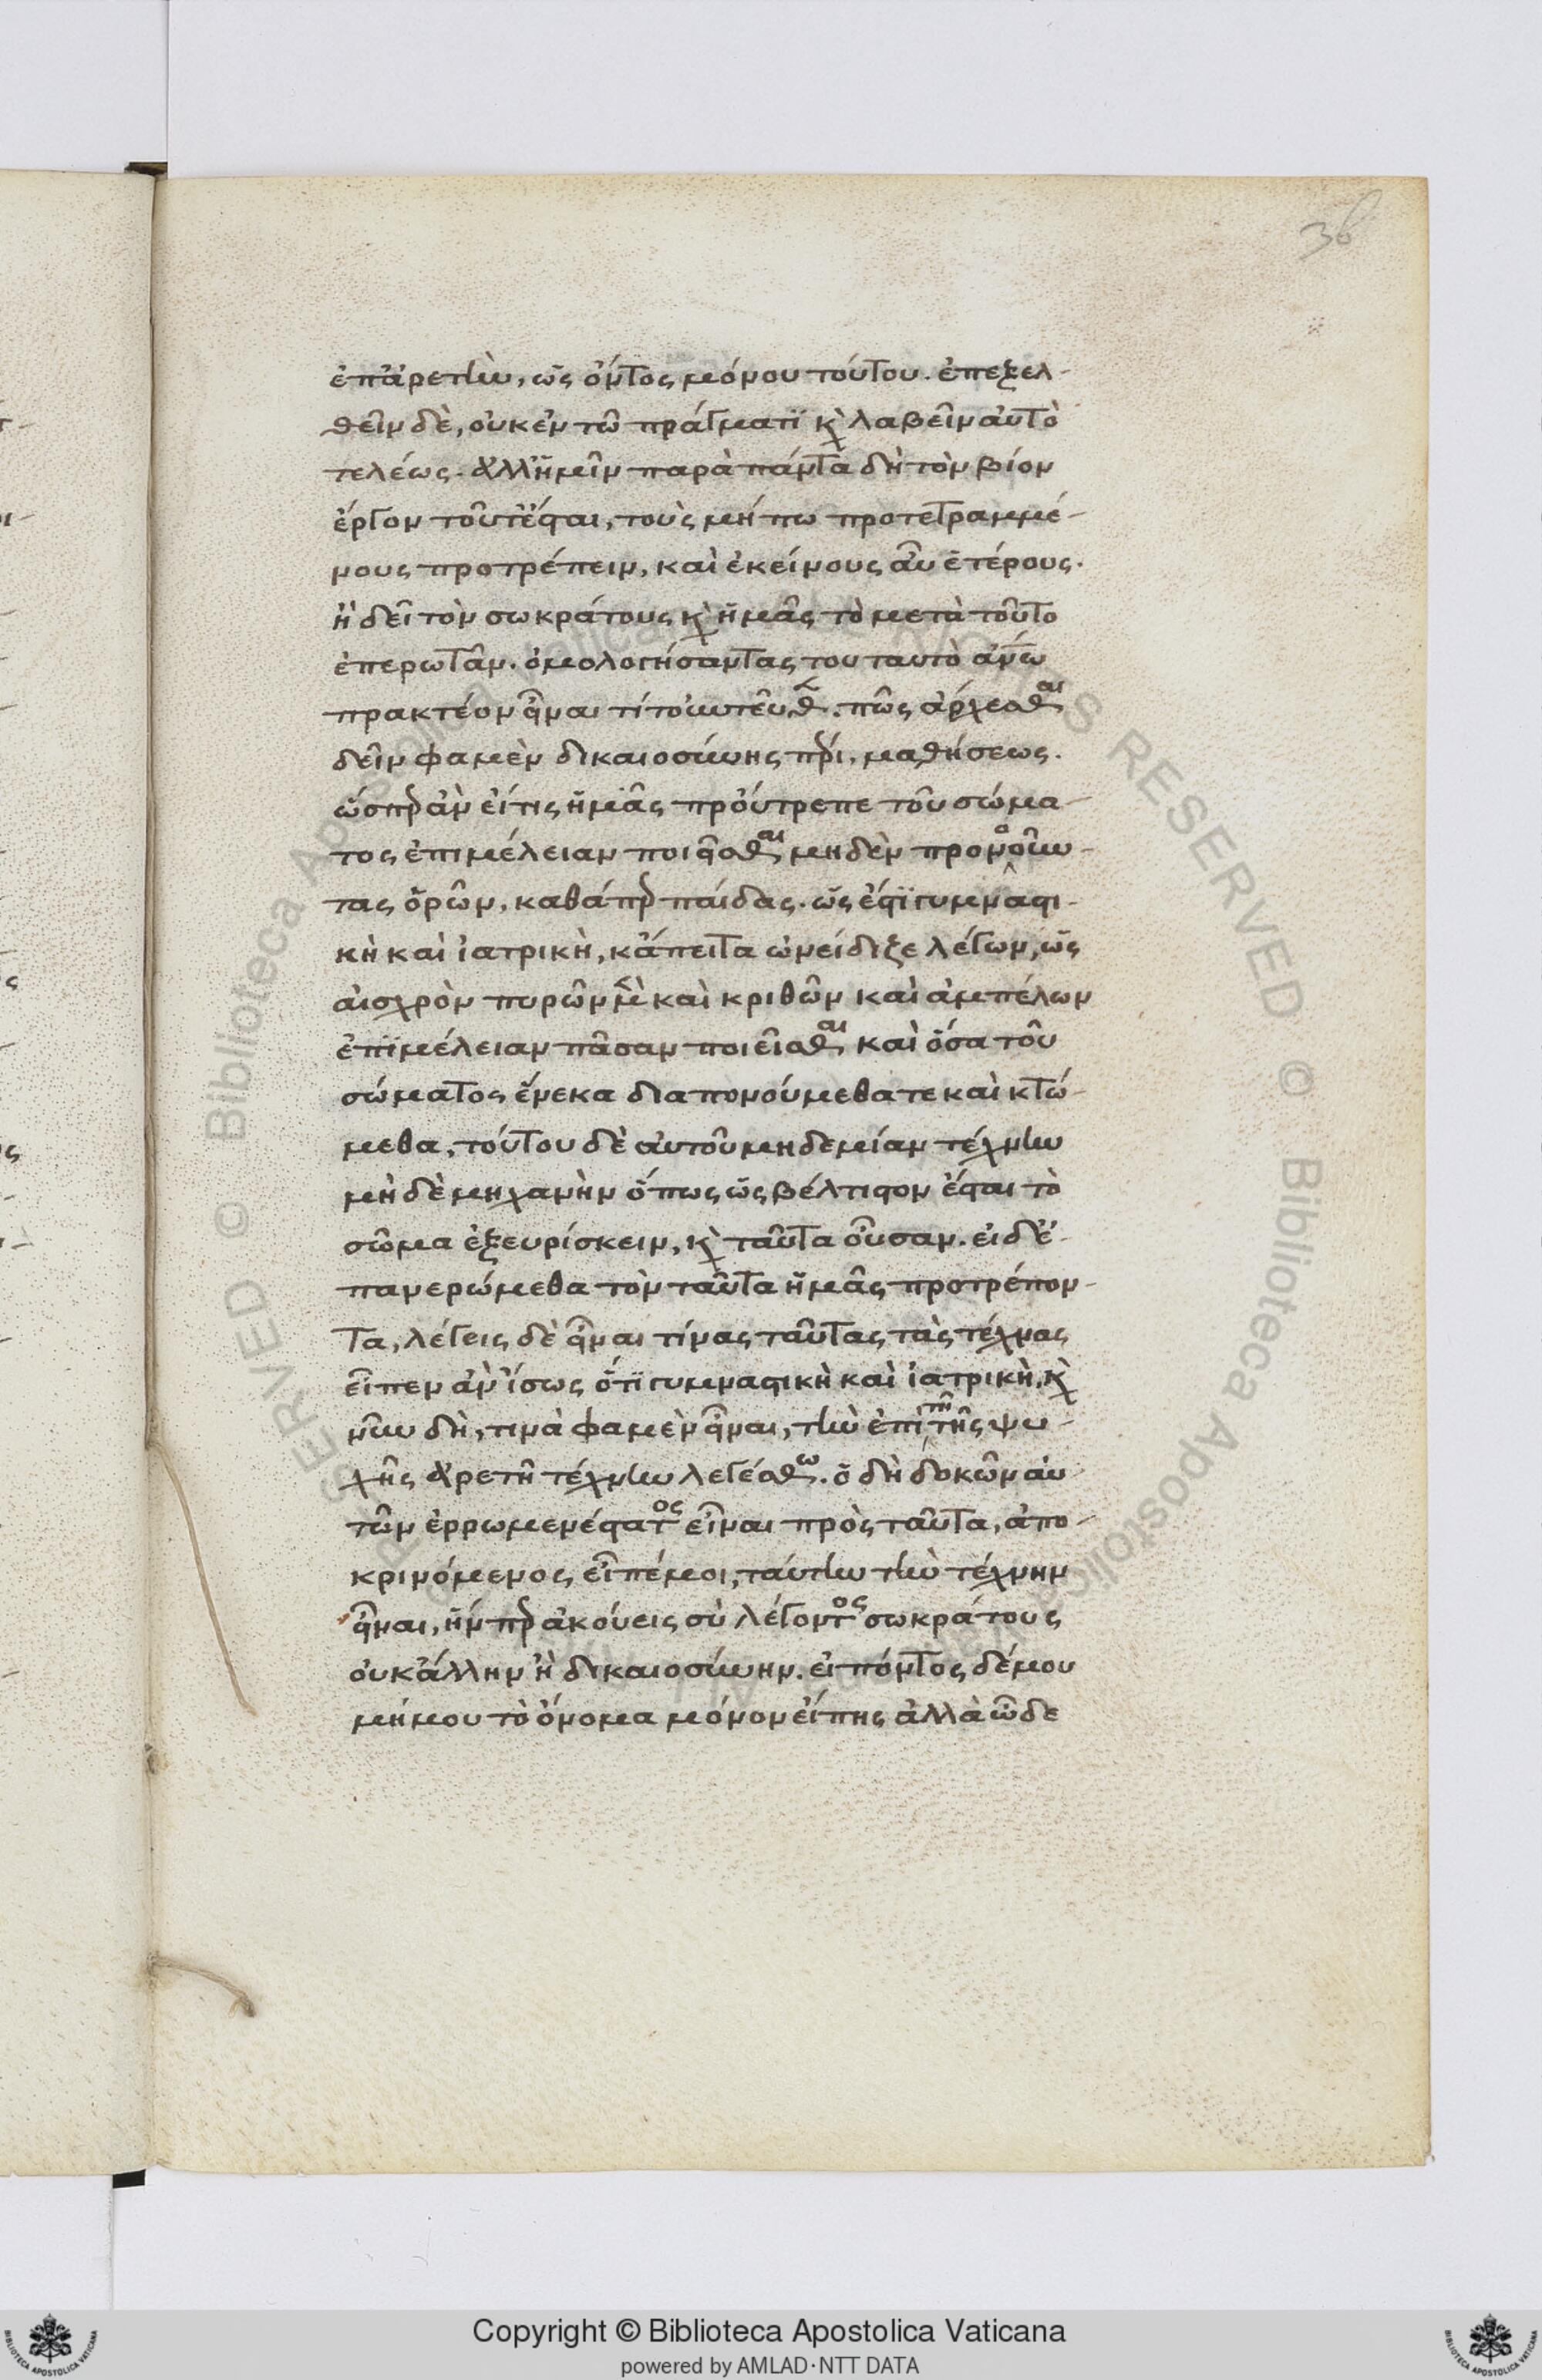 36
ἐπ' ἀρετὴν, ὡς ὄντος μόνου τούτου. ἐπεξελ-
θεῖν δὲ, οὐκ ἐν τῶ πράγματι κ̀ λαβεῖν αὐτὸ
τελέως. ἀλλ' ἡμῖν παρὰ πάντα δὴ τὸν βίον
ἔργον τοῦτ' ἔσται, τοὺς μή πω προτετραμμέ-
νους προτρέπειν, καὶ ἐκείνους αὖ ἑτέρους.
ἢ δεῖ τὸν σωκράτους κ̀ ἡμᾶς τὸ μετὰ τοῦτο
ἐπερωτᾶν. ὁμολογήσαντας του ταυτὸ ἀν̅ω̅
πρακτέον εἶναι τί τοὐντεῦθ. πῶς ἄρχεσθαι
δεῖν φαμὲν δικαιοσύνης πρι, μαθήσεως.
ὥσπρ ἂν εἴ τις ἡμᾶς προὔτρεπε τοῦ σώμα-
τος ἐπιμέλειαν ποιεῖσθαι μηδὲν προνοοῦν-
τας ὁρῶν, καθάπρ παίδας. ὡς ἔστι γυμναστι-
κὴ καὶ ἰατρικὴ, κἄπειτα ὠνείδιζε λέγων, ὡς
αἰσχρὸν πυρῶν μὲν καὶ κριθῶν καὶ ἀμπέλων
ἐπιμέλειαν πᾶσαν ποιεῖσθαι καὶ ὅσα τοῦ
σώματος ἕνεκα διαπονούμεθα τε καὶ κτώ-
μεθα, τούτου δὲ αὐτοῦ μηδεμίαν τέχνην
μὴ δὲ μηχανὴν ὅπως ὡς βέλτιστον ἔσται τὸ
σῶμα ἐξευρίσκειν, κ̀ ταῦτα οὖσαν. εἰ δ' ἐ-
πανερώμεθα τὸν ταῦτα ἡμᾶς προτρέπον-
τα, λέγεις δὲ εἶναι τίνας ταῦτας τὰς τέχνας
εἶπεν ἂν ἴσως ὅτι γυμναστικὴ καὶ ἰατρικὴ, κ̀
νῦν δὴ, τινὰ φαμὲν εἶναι, τὴν ἐπὶ τῆ τῆς ψυ-
χῆς ἀρετῆ τέχνην λεγέσθω. ὁ δὴ δοκῶν αὐ
τῶν ἐρρωμενέστατος εἶναι πρὸς ταῦτα, ἀπο-
κρινόμενος, εἶπέ μοι, ταύτην τὴν τέχνην
εἶναι, ἥν πρ ἀκούεις σὺ λέγοντος σωκράτους
οὐκ ἄλλην ἢ δικαιοσύνην. εἰπόντος δέ μου
μή μου τὸ ὄνομα μόνον εἴπης ἀλλὰ ὧδε
Copyright © Biblioteca Apostolica Vaticana
powered by AMLAD·NTT DATA